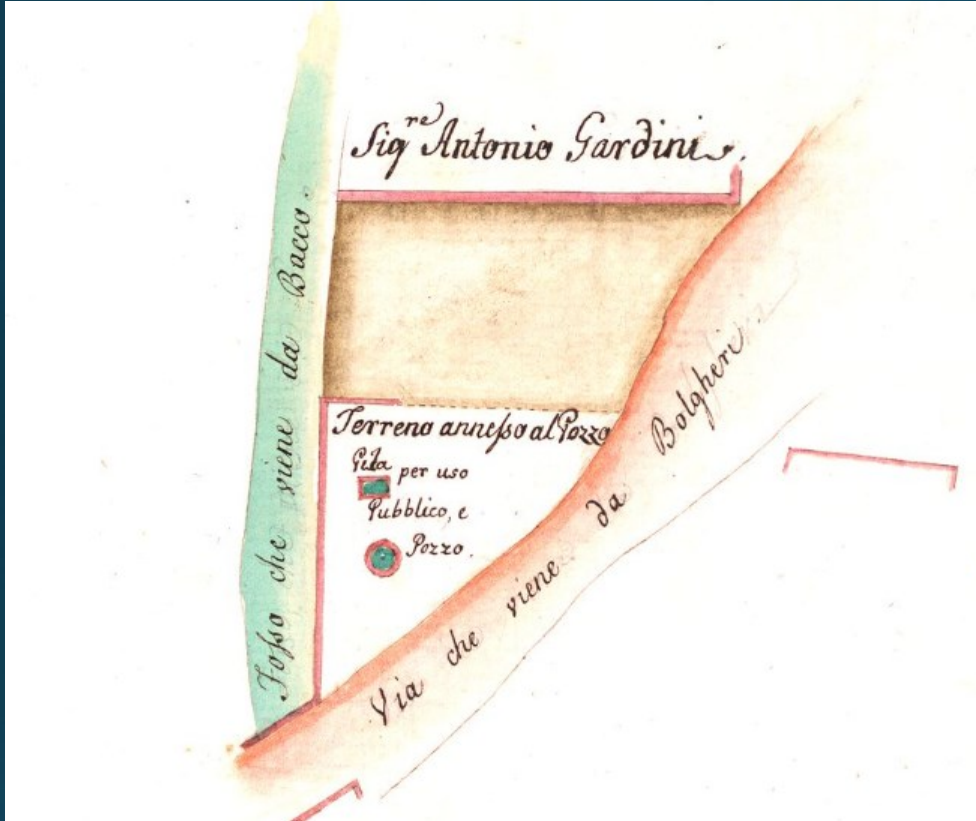 Sig.re Antonio Gardini.
Fosso che viene da Bacco.
Terreno annesso al Pozzo
Pila per uso
Pubblico, e
Pozzo.
Via che viene da Bolgheri